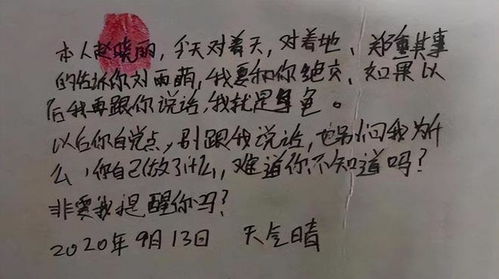 本人赵晓丽，今天对着天，对着地、郑重其事
的告诉你刘雨萌，我要和你绝交、如果以
后我再跟你说话，我就是角色。
以后你自觉点，别跟我说话，也别问我为什
么，你自己做了什么，难道你不知道吗？
非要我提醒你吗？
2020年9月13日 天气晴